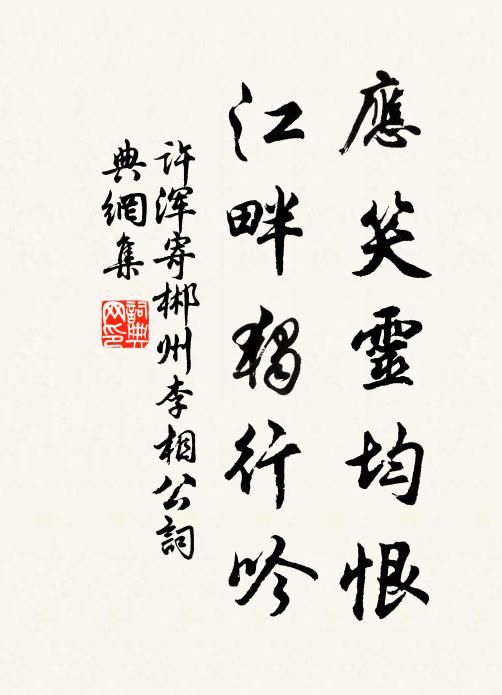 應笑靈均恨
江畔獨行吟
許渾寄郴州李相公詞
典網集
詞典
网印